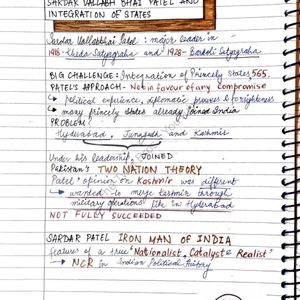 SARDAR VALLABH BHAI PATEL AND
INTEGRATION OF STATES
Sardar Vallabhbhai Patel : major leader in
1918- Kheda Satyagraha and 1928- Bardoli Satyagraha
BIG CHALLENGE: Integration of Princely States 565.
PATEL'S APPROACH- Not in favour of any compromise
→ political experience, diplomatic prowess & foresightedness
→ many princely states already joined India
PROBLEM
Hyderabad, Junagadh and Kashmir
Under his leadership, JOINED
Pakistan's TWO NATION THEORY
Patel's opinion on Kashmir was different
→ wanted to merge Kashmir through
military operations like in Hyderabad
NOT FULLY SUCCEEDED
SARDAR PATEL IRON MAN OF INDIA
features of a true "Nationalist, Catalyst & Realist"
→ NCR in Indian Political History